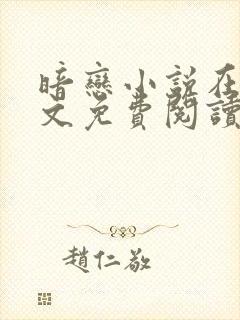 暗戀小説在
文免費閱讀
趙仁敬